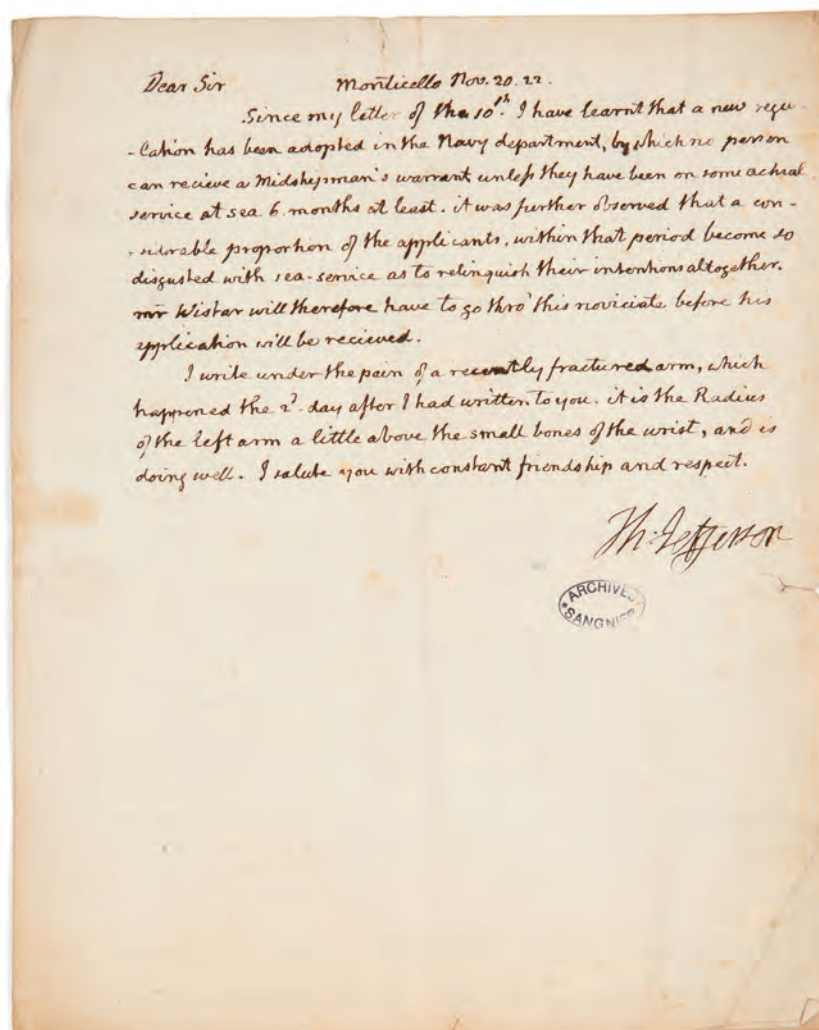 Dear Sir Monticello Nov. 20. 22.
Since my letter of the 10th. I have learnt that a new regu-
-lation has been adopted in the Navy department, by which no person
can recieve a Midshipman's warrant unless they have been on some actual
service at sea 6. months at least. it was further observed that a con-
-siderable proportion of the applicants, within that period become so
disgusted with sea-service as to relinquish their intentions altogether.
mr Wistar will therefore have to go thro' this noviciate before his
application will be recieved.
I write under the pain of a recently fractured arm, which
happened the 2d. day after I had written to you. it is the Radius
of the left arm a little above the small bones of the wrist, and is
doing well. I salute you with constant friendship and respect.
Th: Jefferson
ARCHIVES
SANGNIER